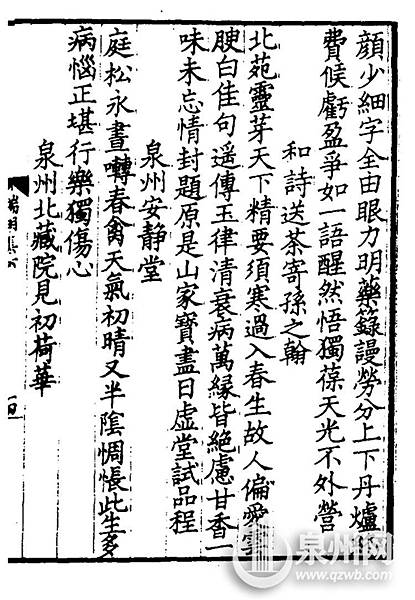 顔少細字全由眼力明藥籙謾勞分上下丹爐
費候虧盈爭如一語醒然悟獨葆天光不外營
和詩送茶寄孫之翰
北苑靈芽天下精要須寒過入春生故人偏愛雲
腴白佳句遥傳玉律清衰病萬縁皆絶慮甘香一
味未忘情封題原是山家寶盡日虚堂試品程
泉州安静堂
庭松永晝囀春禽天氣初晴又半隂惆悵此生多
病惱正堪行樂獨傷心
泉州北藏院見初荷華
泉州网
www.qzwb.com